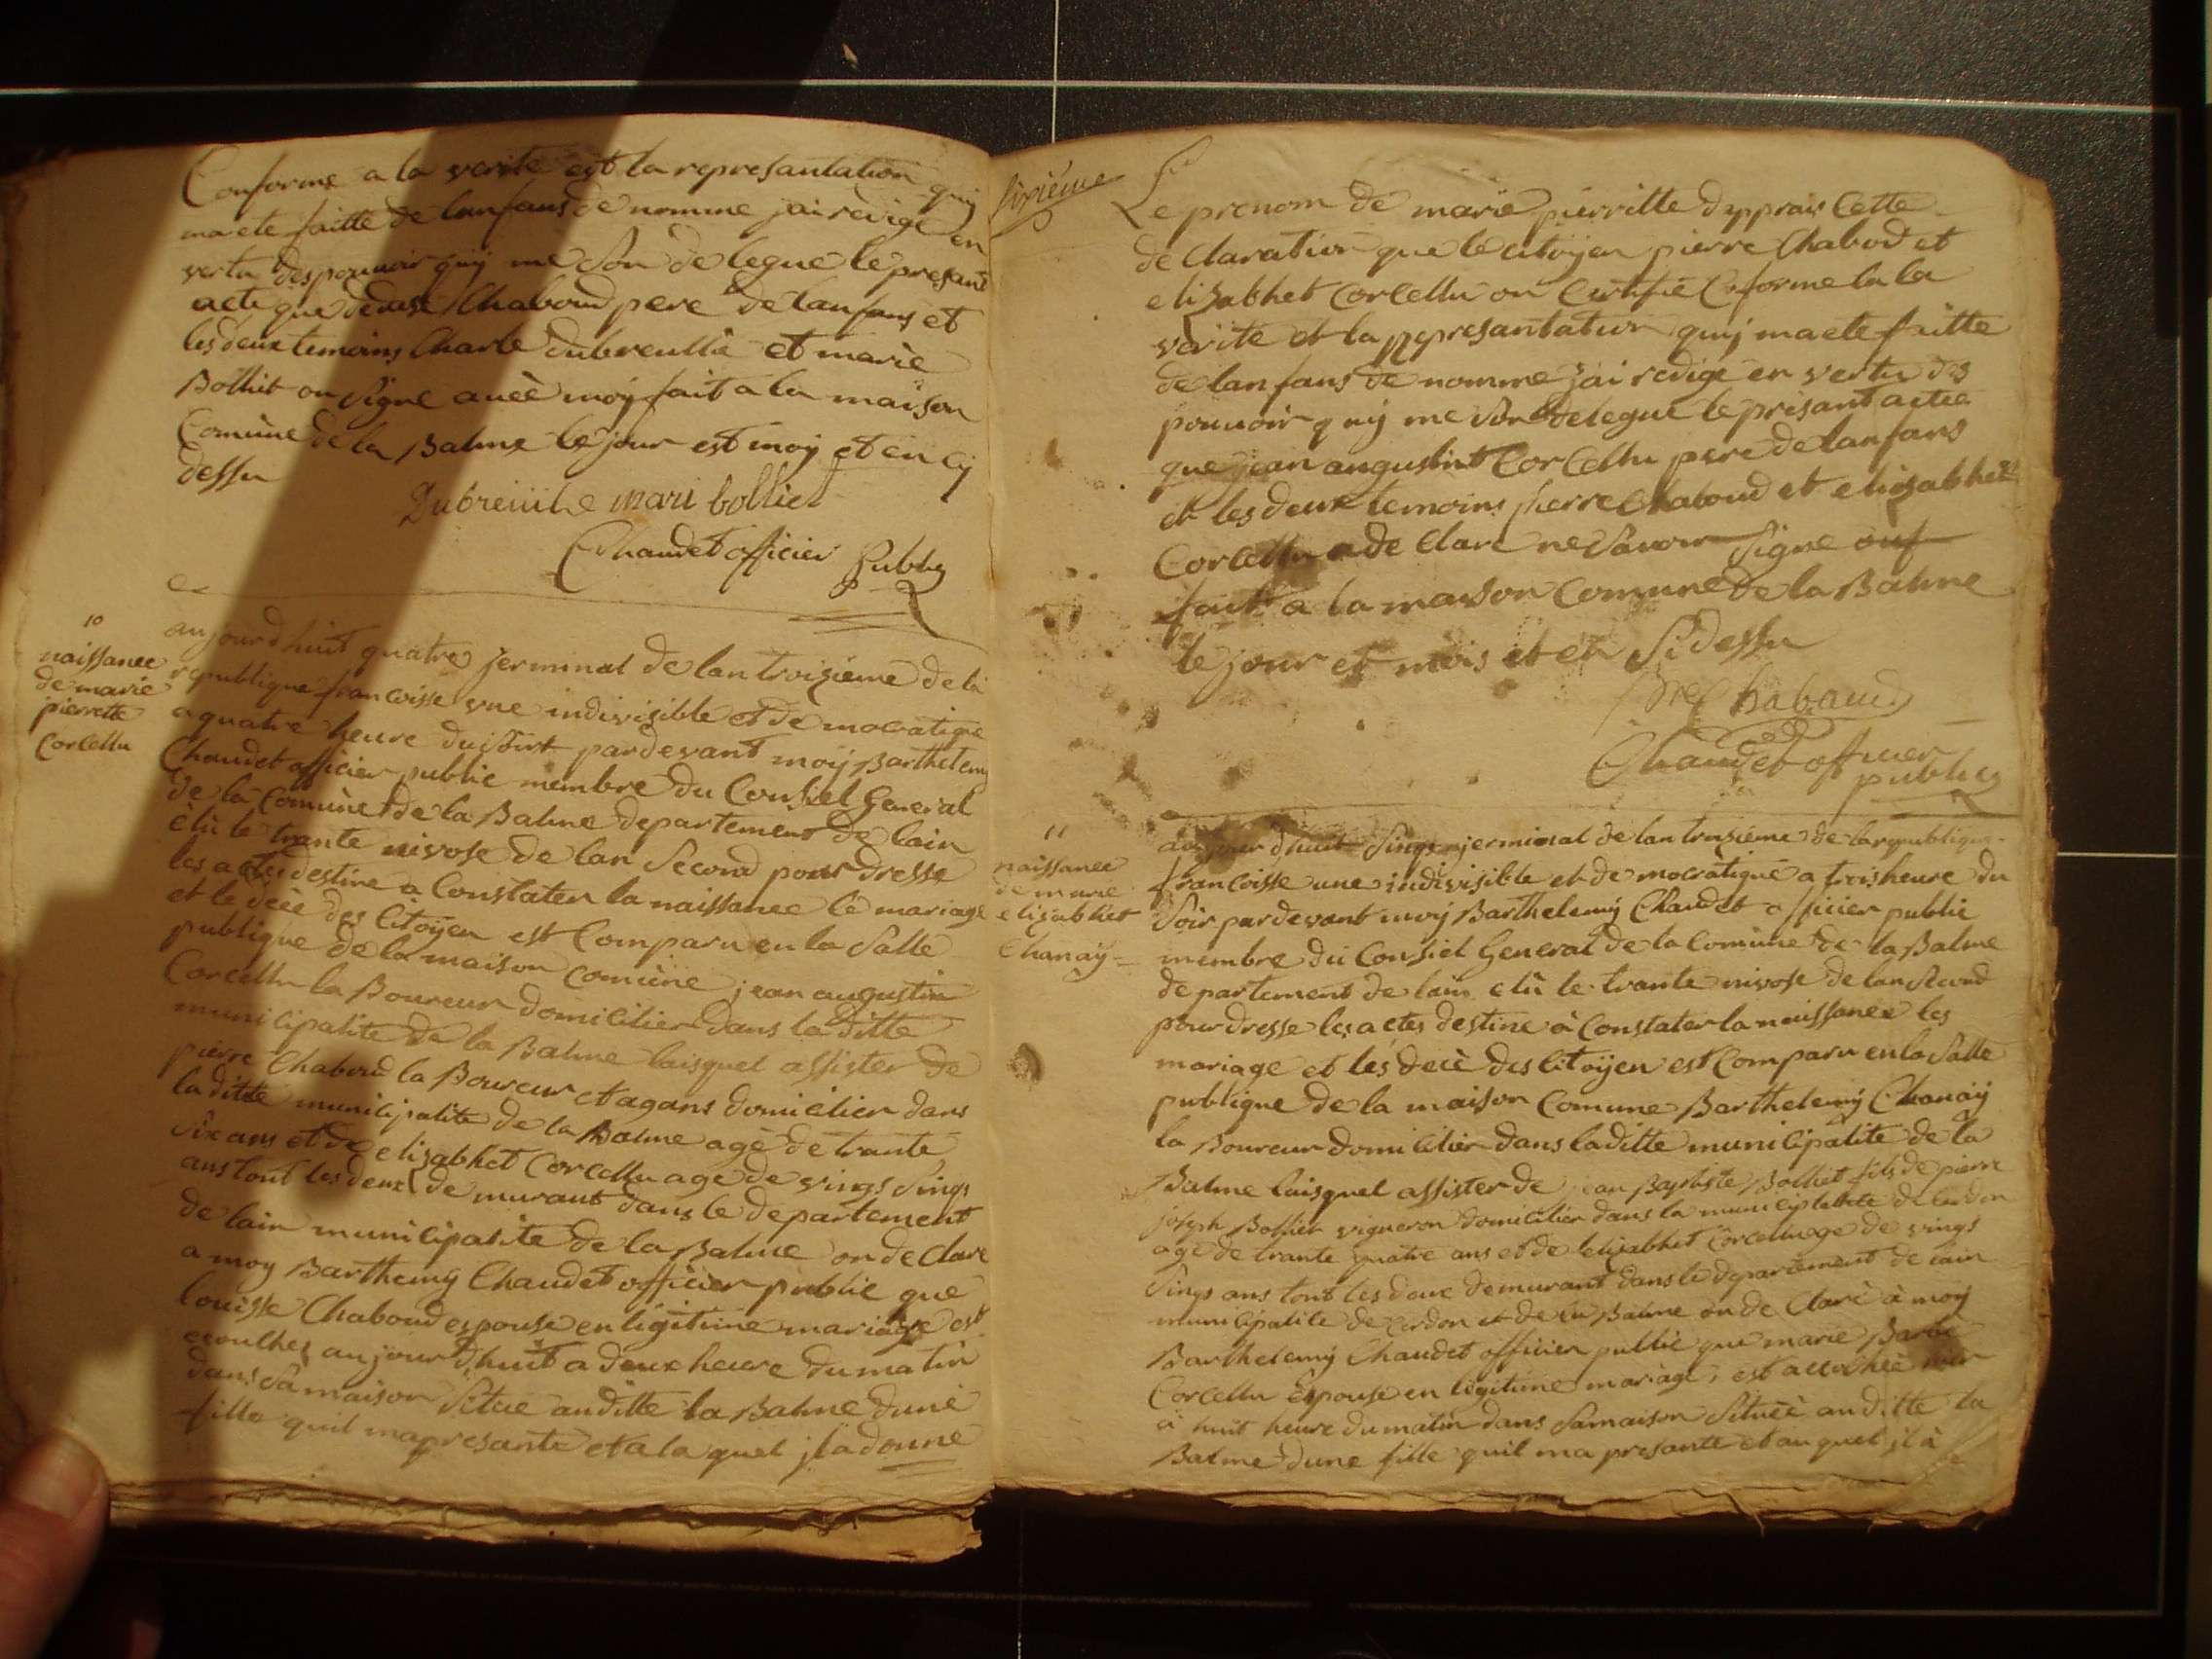 Conforme a la verite est la represantation quij
ma ete faitte de lanfans de nomme jai redige en
vertu des pouvoir quij me son delegue le presant
acte que Chaboud pere de lanfans et
les deux temoins Charle dubreullie et marie
Bolliet on Signe avec moij fait a la maison
Comune de la Balme le jour est moy et en cij
dessu
Dubreuille mari bolliet
Chaudet officier Publiq
10
naissance
de marie
pierrette
Corcellu
aujourdhuit quatre jerminal de lan troizieme de la
republique francoisse vne indivisible et democratique
a quatre heure du soirt pardevant moij Barthelemij
Chaudet officier public membre du Consiel General
de la Comune de la Balme departement de lain
elu le trante nivose de lan Second pour dresse
les actes destine a Constater la naissance le mariage
et le dece des Citoijen est Comparu en la Salle
publique de la maison comune jean augustin
Corcellu la Boureur domicilier dans la ditte
municipalite de la Balme laisquel assister de
pierre Chaboud la Boureur et agans domicilier dans
la ditte municipalite de la Balme age de trante
Six ans et de elizabhet Corcellu age de vings Sings
ans tout les deux demurant dans le departement
de lain municipalite de la Balme on de Clare
a moy Barthemij Chaudet officier public que
louisse Chaboud espouse en ligitime mariage est
acoulhes aujourdhuit a deux heure du matin
dans Sa maison Situe auditte la Balme dune
fille quil ma presante et a la quel jl a donne
Sixiéme
Le prenom de marie pierritte dapprais Cette
de Claration que le citoijen pierre Chabod et
elizabhet Corcellu on Certifie Coforme la la
verite et la represantation quij ma ete faitte
de lanfans de nomme jai redige en vertu des
pouvoir quij me son delegue le presant actee
que jean augustint Corcellu pere de lanfans
et les deux temoins pierre Chaboud et elizabhet
Corcellu a de Clare ne Savoir Signe ouf
fait a la maison Comune de la Balme
le jour et mois et en Si dessu
pre Chaboud
Chaudet officier
publicq
11
naissance
de marie
elizabhet
Chanaÿ
aujourdhuit Sings jerminal de lan troisieme de la republique
francoisse une indivisible et democratique a trois heure du
Soir pardevant moij Barthelemij Chaudet officier public
membre du Consiel General de la Comune de la Balme
departement de lain elu le trante nivose de lan Second
pour dresse les actes destine a Constater la naissance les
mariage et les dece des Citoijen est Comparu en la Salle
publique de la maison Comune Barthelemij Chanaij
la Boureur domicilier dans la ditte municipalite de la
Balme laisquel assister de jean Baptiste Bolliet fils de pierre
joseph Bolliet vigneron domicilier dans la municipalitte de Cerdon
age de trante quatre ans et de lelizabhet Corcellu age de vings
Sings ans tout les deux demurant dans le departement de lain
municipalite de Cerdon et de la Balme on de Clare à moy
Barthelemij Chaudet officier public que marie Barbe
Corcellu Espouse en legitime mariage, est acouchee hier
a huit heure du matin dans Sa maison Situeè auditte la
Balme dune fille quil ma presante et au quel jl a